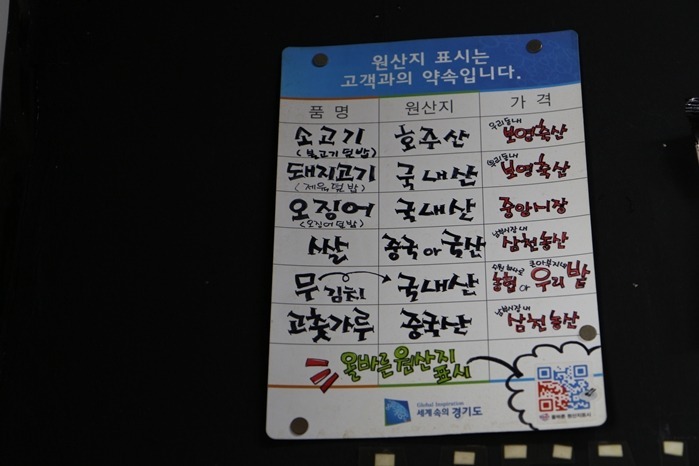 원산지 표시는
고객과의 약속입니다.
품 명 원산지 가 격
소고기 호주산 우리동내 보영축산
(불고기덮밥)
돼지고기 국내산 우리동내 보영축산
(제육덮밥)
오징어 국내산 중앙시장
(오징어덮밥)
쌀 중국 아 국산 남부시장 내 삼천농산
무 김치 국내산 농협 아 우리 밭
고춧가루 중국산 남부시장 내 삼천농산
올바른 원산지
표시
Global Inspiration
세계 속의 경기도
올바른 원산지표시